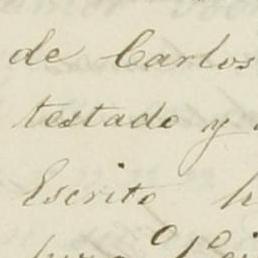 de Carlos
testado y
Escrito h